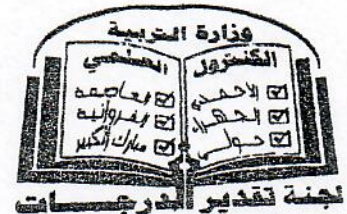 وزارة التربية
الكنترول العلمي
☑ الاحمدي
☑ الجهراء
☑ حولي
☑ العاصمه
☑ الفروانيه
☑ مبارك الكبير
لجنة تقدير الدرجات